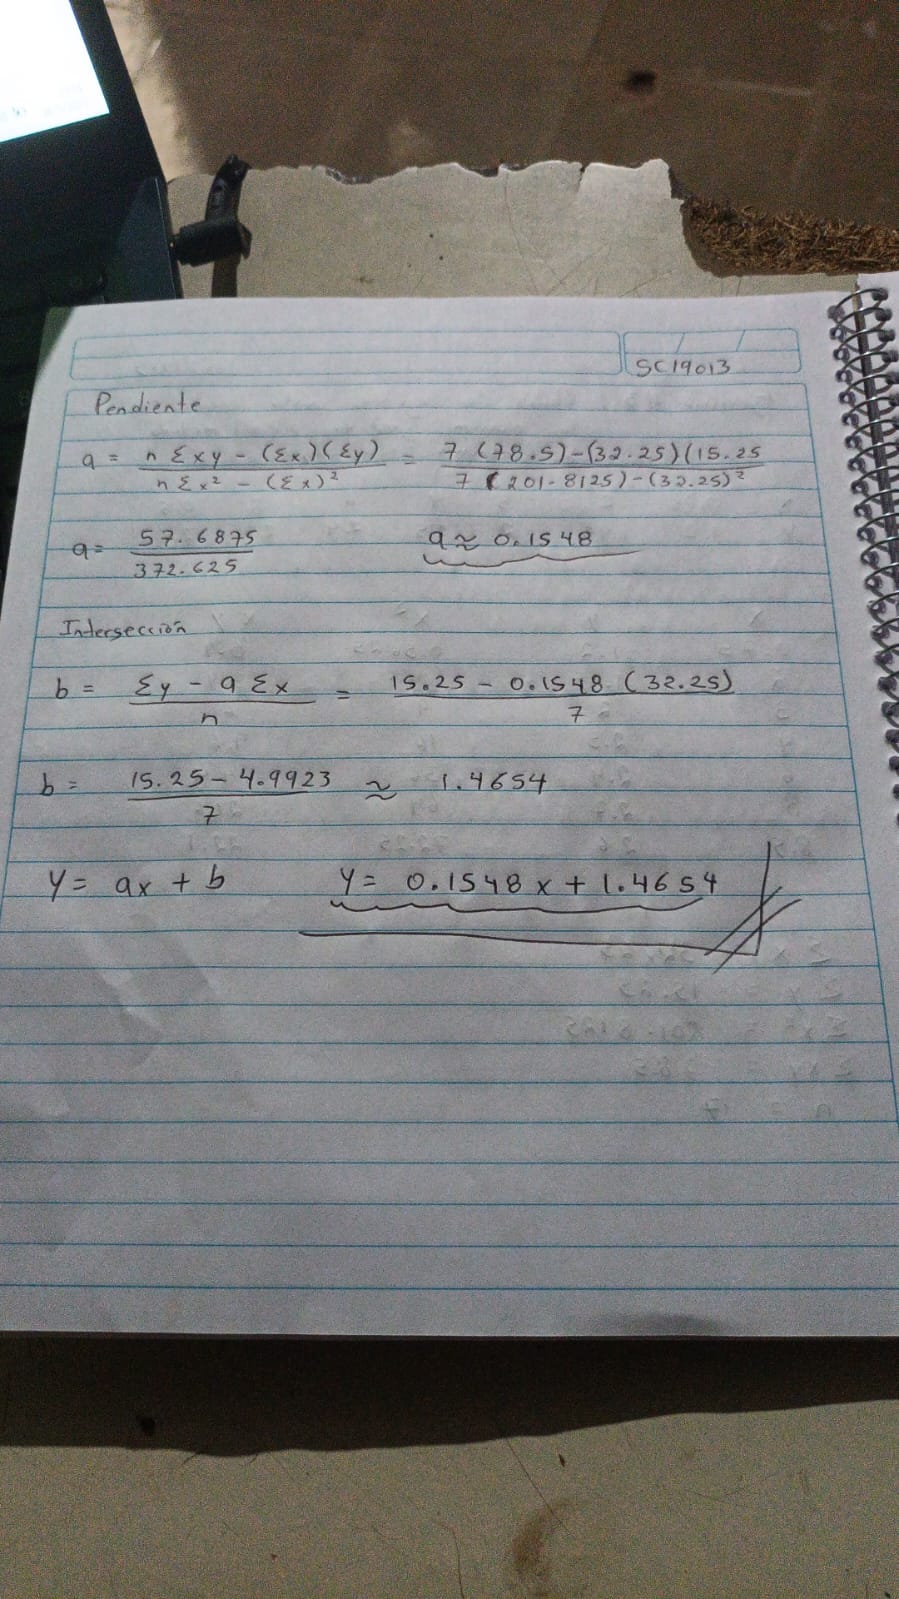 SC19013
Pendiente
a = n Σxy - (Σx)(Σy) / n Σx² - (Σx)² = 7 (78.5)-(32.25)(15.25 / 7 (201.8125)-(32.25)²
a= 57.6875 / 372.625 a≈ 0.1548
Intersección
b = Σy - a Σx / n = 15.25 - 0.1548 (32.25) / 7
b= 15.25 - 4.9923 / 7 ≈ 1.4654
Y= ax + b Y= 0.1548x + 1.4654